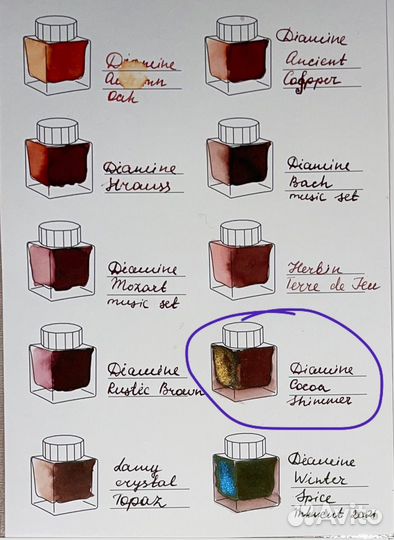 Diamine
Autumn
Oak
Diamine
Ancient
Copper
Diamine
Strauss
Diamine
Bach
music set
Diamine
Mozart
music set
Herbin
Terre de Feu
Diamine
Rustic Brown
Diamine
Cocoa
Shimmer
Lamy
crystal
Topaz
Diamine
Winter
Spice
Avito